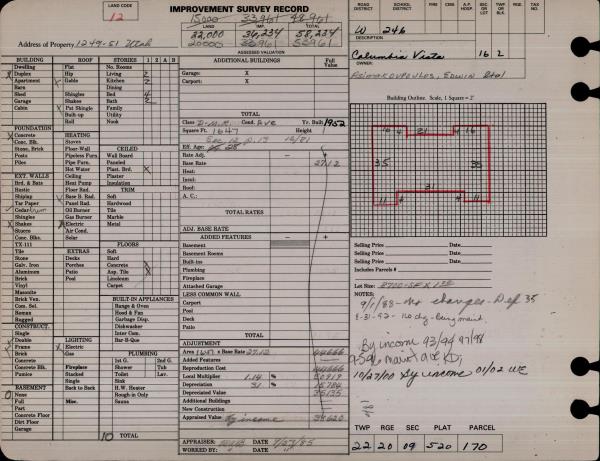 LAND CODE
12
IMPROVEMENT SURVEY RECORD
15000 33,961 48,961
LAND
22,000 36,234 58,234
20000 33961 53961
ASSESSED VALUATION
Address of Property 1249-51 Utah
ROAD DISTRICT
SCHOOL DISTRICT
FIRE DIST.
CEM. DIST.
A.P. HOSP.
SEC OR LOT
TWP OR BLK
RGE.
TAX NO.
W 246
DESCRIPTION
Columbia Vista 16 2
OWNER:
Asimakopoulos, Edwin Etal
BUILDING
ROOF
STORIES
1 2 A B
Dwelling
Flat
No. Rooms
Duplex
Hip
Living
2
Apartment
Gable
Kitchen
2
Barn
Dining
Shed
Shingles
Bed
4
Garage
Shakes
Bath
2
Cabin
Pat Shingle
Family
Built-up
Utility
Roll
Nook
FOUNDATION
HEATING
Concrete
Stoves
Conc. Blk.
Floor-Wall
CEILED
Stone, Brick
Pipeless Furn.
Wall Board
Posts
Pipe Furn.
Paneled
Piles
Hot Water
Plast. Brd.
X
Ceiling
Plaster
EXT. WALLS
Heat Pump
Insulation
Brd. & Bats
Floor Rad.
TRIM
Rustic
Base B. Rad.
Soft
Shiplap
Panel Rad.
Hardwood
Tar Paper
Oil Burner
Tile
Cedar
Gas Burner
Marble
Shingles
Electric
Metal
Shakes
Air Cond.
Stucco
Solar
FLOORS
Conc. Blks.
Soft
TX-111
EXTRAS
Hard
Tile
Decks
Concrete
Stone
Porches
Asp. Tile
Galv. Iron
Patio
Linoleum
Aluminum
Pool
Carpet
Brick
Vinyl
Masonite
BUILT-IN APPLIANCES
Brick Ven.
Range & Oven
Com. Sel.
Hood & Fan
Roman
Garbage Disp.
Rugged
Dishwasher
CONSTRUCT.
Inter Com.
Single
Bar-B-Que
Double
LIGHTING
Frame
Electric
PLUMBING
Brick
Gas
1st G. 2nd G.
Concrete
Shower Tub
Concrete Blk.
Fireplace
Toilet Lav.
Pumice
Stacked
Sink
Single
H.W. Heater
BASEMENT
Back to Back
Rough in Only
None
Sauna
Full
Misc.
Part
Concrete Floor
Dirt Floor
Garage
10 TOTAL
ADDITIONAL BUILDINGS
Full Value
Garage: X
Carport: X
TOTAL
Class D-M.R. Cond. Ave Yr. Built 1952
Square Ft. 1647 Height
Eff. Age:
Rate Adj.
Base Rate 27.12
Heat:
Insul:
Roof:
A.C.:
TOTAL RATES
ADJ. BASE RATE
ADDED FEATURES
Basement
Basement Rooms
Built-ins
Plumbing
Fireplace
Attached Garage
LESS COMMON WALL
Carport
Pool
Deck
Patio
TOTAL
ADJUSTMENT
Area 1647 x Base Rate 27.12 44666
Added Features
Reproduction Cost 44666
Local Multiplier 1.14 % 50919
Depreciation 31 % 15784
Depreciated Value 35135
Additional Buildings
New Construction
Appraised Value By income 38620
APPRAISER: DATE 7/23/85
WORKED BY: DATE
Building Outline. Scale, 1 Square = 2'
16 4 21 4 16
35 35
31
11 4 4 11
Selling Price Date
Selling Price Date
Selling Price Date
Includes Parcels #
Lot Size:
NOTES:
9/1/83 - no changes - Dep 35
By income 93/94 97/98
10/27/00 By income 01/02 WE
TWP RGE SEC PLAT PARCEL
22 20 09 520 170